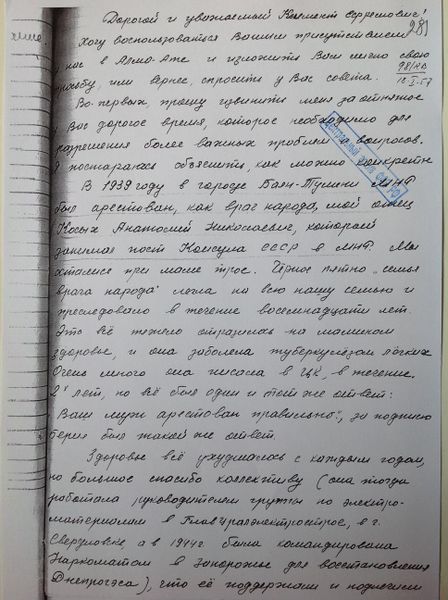 Дорогой и уважаемый Климент Ефремович!
281
Хочу воспользоваться Вашим присутствием
у нас в Алма-Ате и изложить Вам лично свою
просьбу, или вернее, спросить у Вас совета.
Во-первых, прошу извинить меня за отнятое
у Вас дорогое время, которое необходимо для
разрешения более важных проблем и вопросов.
Я постараюсь объяснить, как можно конкретн
В 1939 году в городе Баян-Тумыни МНР
был арестован, как враг народа, мой отец
Косых Анатолий Николаевич, который
занимал пост Консула СССР в МНР. Мы
остались при маме трое. Чёрное пятно „семья
врага народа" легла на всю нашу семью и
преследовало в течение восемнадцати лет.
Это всё тяжело отразилось на мамином
здоровье, и она заболела туберкулёзом лёгких
Очень много она писала в ЦК, в течение
2х лет, но всё был один и тот же ответ:
„Ваш муж арестован правильно", за подписью
Берии был такой же ответ.
Здоровье всё ухудшалось с каждым годом,
но большое спасибо коллективу (она тогда
работала руководителем группы по электро-
материалам в Главуралэлектрострое, в г.
Свердловске, а в 1944г. была командирована
Наркоматом в Запорожье для восстановления
Днепрогэса), что её поддержали и